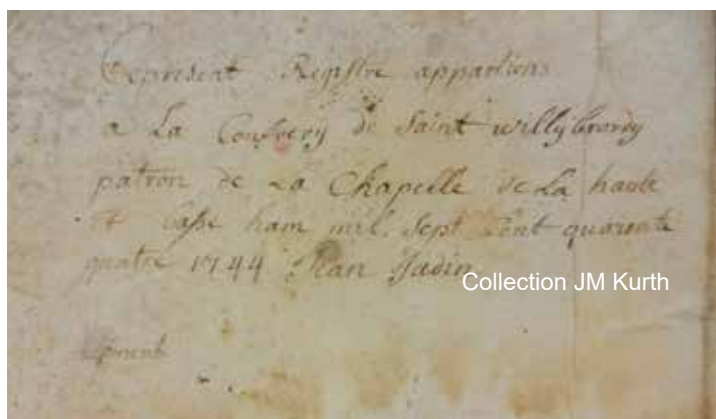 Cepresent Registre appartiens
a La Confrery de Saint willybrordy
patron de La Chapelle de La haute
et basse ham mil. Sept Cent quarente
quatre 1744 Jean Jadin
Collection JM Kurth